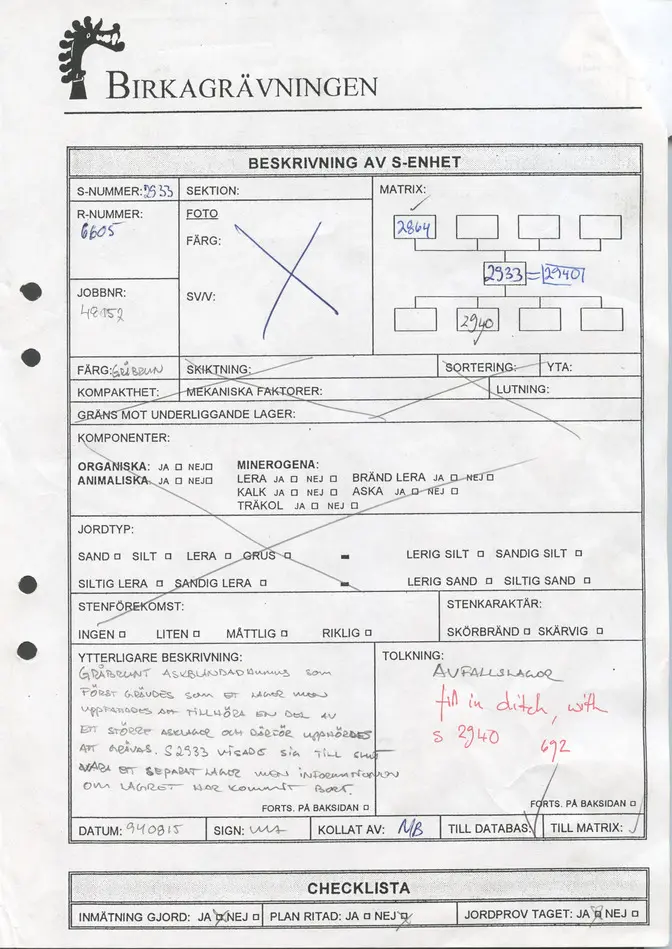 BIRKAGRÄVNINGEN
BESKRIVNING AV S-ENHET
S-NUMMER: 2933
SEKTION:
MATRIX:
R-NUMMER:
6605
FOTO
FÄRG:
2864
2933 = 2940
JOBBNR:
48152
SV/V:
2940
FÄRG: GRÅBRUN
SKIKTNING:
SORTERING:
YTA:
KOMPAKTHET:
MEKANISKA FAKTORER:
LUTNING:
GRÄNS MOT UNDERLIGGANDE LAGER:
KOMPONENTER:
ORGANISKA: JA □ NEJ□
ANIMALISKA: JA □ NEJ□
MINEROGENA:
LERA JA □ NEJ □ BRÄND LERA JA □ NEJ □
KALK JA □ NEJ □ ASKA JA □ NEJ □
TRÄKOL JA □ NEJ □
JORDTYP:
SAND □ SILT □ LERA □ GRUS □ - LERIG SILT □ SANDIG SILT □
SILTIG LERA □ SANDIG LERA □ - LERIG SAND □ SILTIG SAND □
STENFÖREKOMST:
INGEN □ LITEN □ MÅTTLIG □ RIKLIG □
STENKARAKTÄR:
SKÖRBRÄND □ SKÄRVIG □
YTTERLIGARE BESKRIVNING:
GRÅBRUNT ASKBLANDAD HUMUS SOM
FÖRST GRÄVDES SOM ET LAGER MEN
UPPFATTADES ATT TILLHÖRA EN DEL AV
ET STÖRRE ASKLAGER OCH DÄRFÖR UPPHÖRDES
ATT GRÄVAS. S2933 VISADE SIG TILL SLUT
VARA ET SEPARAT LAGER MEN INFORMATIONEN
OM LAGRET HAR KOMMIT BORT.
FORTS. PÅ BAKSIDAN □
TOLKNING:
AVFALLSLAGER
fill in ditch, with
s 2940
692
FORTS. PÅ BAKSIDAN □
DATUM: 940815
SIGN:
KOLLAT AV: NB
TILL DATABAS:
TILL MATRIX:
CHECKLISTA
INMÄTNING GJORD: JA □ NEJ □
PLAN RITAD: JA □ NEJ □
JORDPROV TAGET: JA □ NEJ □